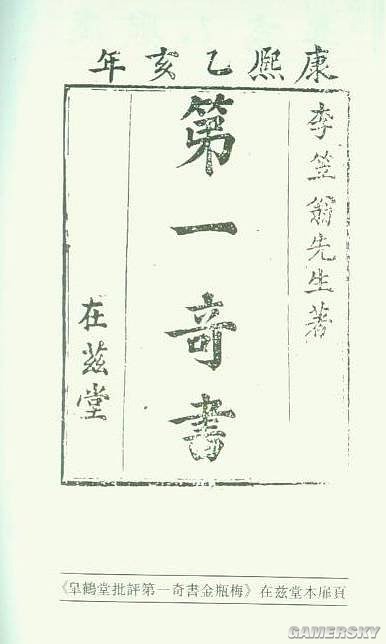 康熙乙亥年
李笠翁先生著
第一奇書
在茲堂
《皐鶴堂批評第一奇書金瓶梅》在兹堂本扉頁
GAMERSKY